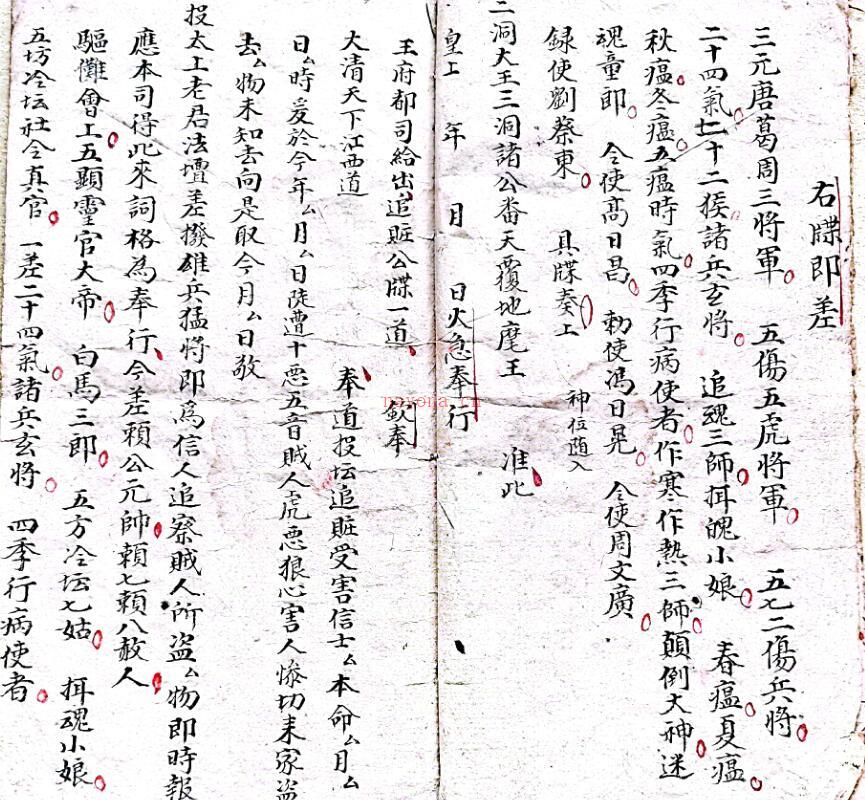 右牒即差
三元唐葛周三將軍 五傷五虎將軍 五七二傷兵將
二十四氣七十二猴諸兵玄將 追魂三師挕魄小娘 春瘟夏瘟
秋瘟冬瘟五瘟時氣四季行病使者作寒作熱三師顛倒大神迷
魂童郎 令使髙日昌 勅使馮日晃 令使周文廣
録使劉蔡東 具牒奏上 神位随入
二洞大王三洞諸公畨天覆地麾王 准此
皇上 年 月 日火急奉行
王府都司給出追賍公牒一道 欽奉
大清天下江西道 奉道投坛追賍受害信士厶本命厶月厶
日厶時爰於今年厶月厶日陡遭十悪五音賊人虎悪狼心害人慘切来家盗
去厶物未知去向是取今月厶日敬
投太上老君法壇差撥雄兵猛將即為信人追察賊人所盗厶物即時報
應本司得此來詞格為奉行今差賴公元帥賴七賴八赦人
驅儺會上五顯靈官大帝 白馬三郎 五方冷坛七姑 挕魂小娘
五坊冷坛社令真官 一差二十四氣諸兵玄將 四季行病使者